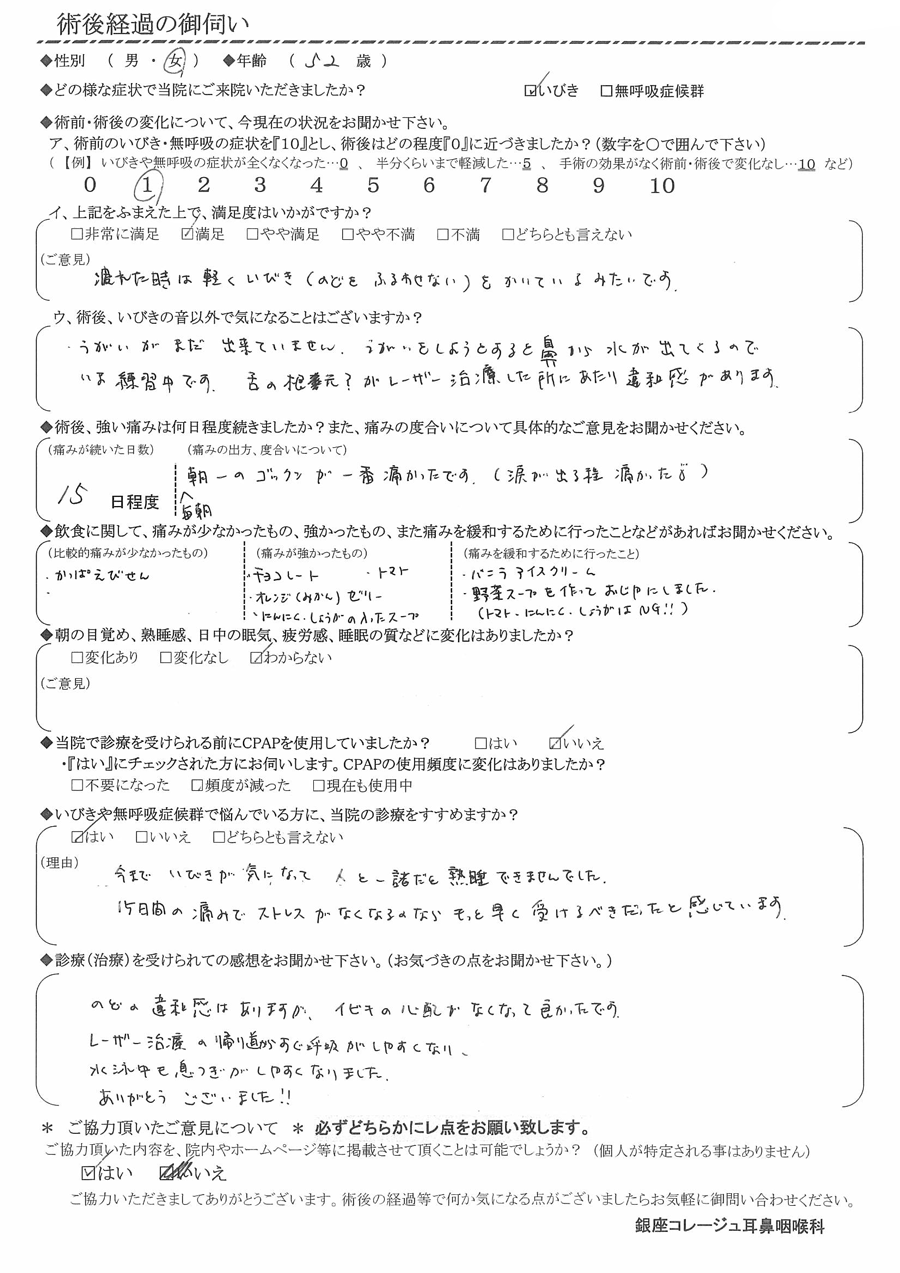 術後経過の御伺い
◆性別 （ 男 ・ 女 ） ◆年齢 （ 52 歳 ）
◆どの様な症状で当院にご来院いただきましたか？ ☑いびき □無呼吸症候群
◆術前・術後の変化について、今現在の状況をお聞かせ下さい。
ア、術前のいびき・無呼吸の症状を『10』とし、術後はどの程度『0』に近づきましたか？（数字を〇で囲んで下さい）
（【例】いびきや無呼吸の症状が全くなくなった…0 、 半分くらいまで軽減した…5 、 手術の効果がなく術前・術後で変化なし…10 など）
0 1 2 3 4 5 6 7 8 9 10
イ、上記をふまえた上で、満足度はいかがですか？
□非常に満足 ☑満足 □やや満足 □やや不満 □不満 □どちらとも言えない
（ご意見）
疲れた時は軽くいびき（のどをふるわせない）をかいているみたいです。
ウ、術後、いびきの音以外で気になることはございますか？
・うがいがまだ出来ていません。うがいをしようとすると鼻から水が出てくるので
いま練習中です。舌の根元？がレーザー治療した所にあたり違和感があります。
◆術後、強い痛みは何日程度続きましたか？また、痛みの度合いについて具体的なご意見をお聞かせください。
（痛みが続いた日数） （痛みの出方、度合いについて）
朝一のゴックンが一番痛かったです。（涙が出る程痛かった）
15 日程度
毎朝
◆飲食に関して、痛みが少なかったもの、強かったもの、また痛みを緩和するために行ったことなどがあればお聞かせください。
（比較的痛みが少なかったもの） （痛みが強かったもの） （痛みを緩和するために行ったこと）
・かっぱえびせん ・チョコレート ・トマト ・バニラアイスクリーム
・ ・オレンジ（みかん）ゼリー ・野菜スープを作っておじやにしました。
・にんにく・しょうがの入ったスープ （トマト・にんにく・しょうがはNG!!）
◆朝の目覚め、熟睡感、日中の眠気、疲労感、睡眠の質などに変化はありましたか？
□変化あり □変化なし ☑わからない
（ご意見）
◆当院で診療を受けられる前にCPAPを使用していましたか？ □はい ☑いいえ
・『はい』にチェックされた方にお伺いします。CPAPの使用頻度に変化はありましたか？
□不要になった □頻度が減った □現在も使用中
◆いびきや無呼吸症候群で悩んでいる方に、当院の診療をすすめますか？
☑はい □いいえ □どちらとも言えない
（理由）
今まで いびきが気になって 人と一諸だと熟睡できませんでした。
15日間の痛みでストレスがなくなるのならもっと早く受けるべきだったと感じています。
◆診療（治療）を受けられての感想をお聞かせ下さい。（お気づきの点をお聞かせ下さい。）
のどの違和感はありますが、イビキの心配がなくなって良かったです。
レーザー治療の帰り道からすぐ呼吸がしやすくなり、
水泳中も息つぎがしやすくなりました。
ありがとうございました!!
＊ ご協力頂いたご意見について ＊ 必ずどちらかにレ点をお願い致します。
ご協力頂いた内容を、院内やホームページ等に掲載させて頂くことは可能でしょうか？ （個人が特定される事はありません）
☑はい いいえ
ご協力いただきましてありがとうございます。術後の経過等で何か気になる点がございましたらお気軽に御問い合わせください。
銀座コレージュ耳鼻咽喉科